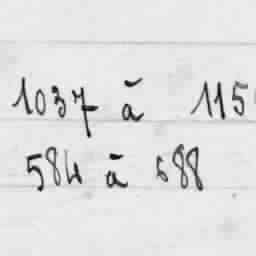 1037 à 115
584 à 688